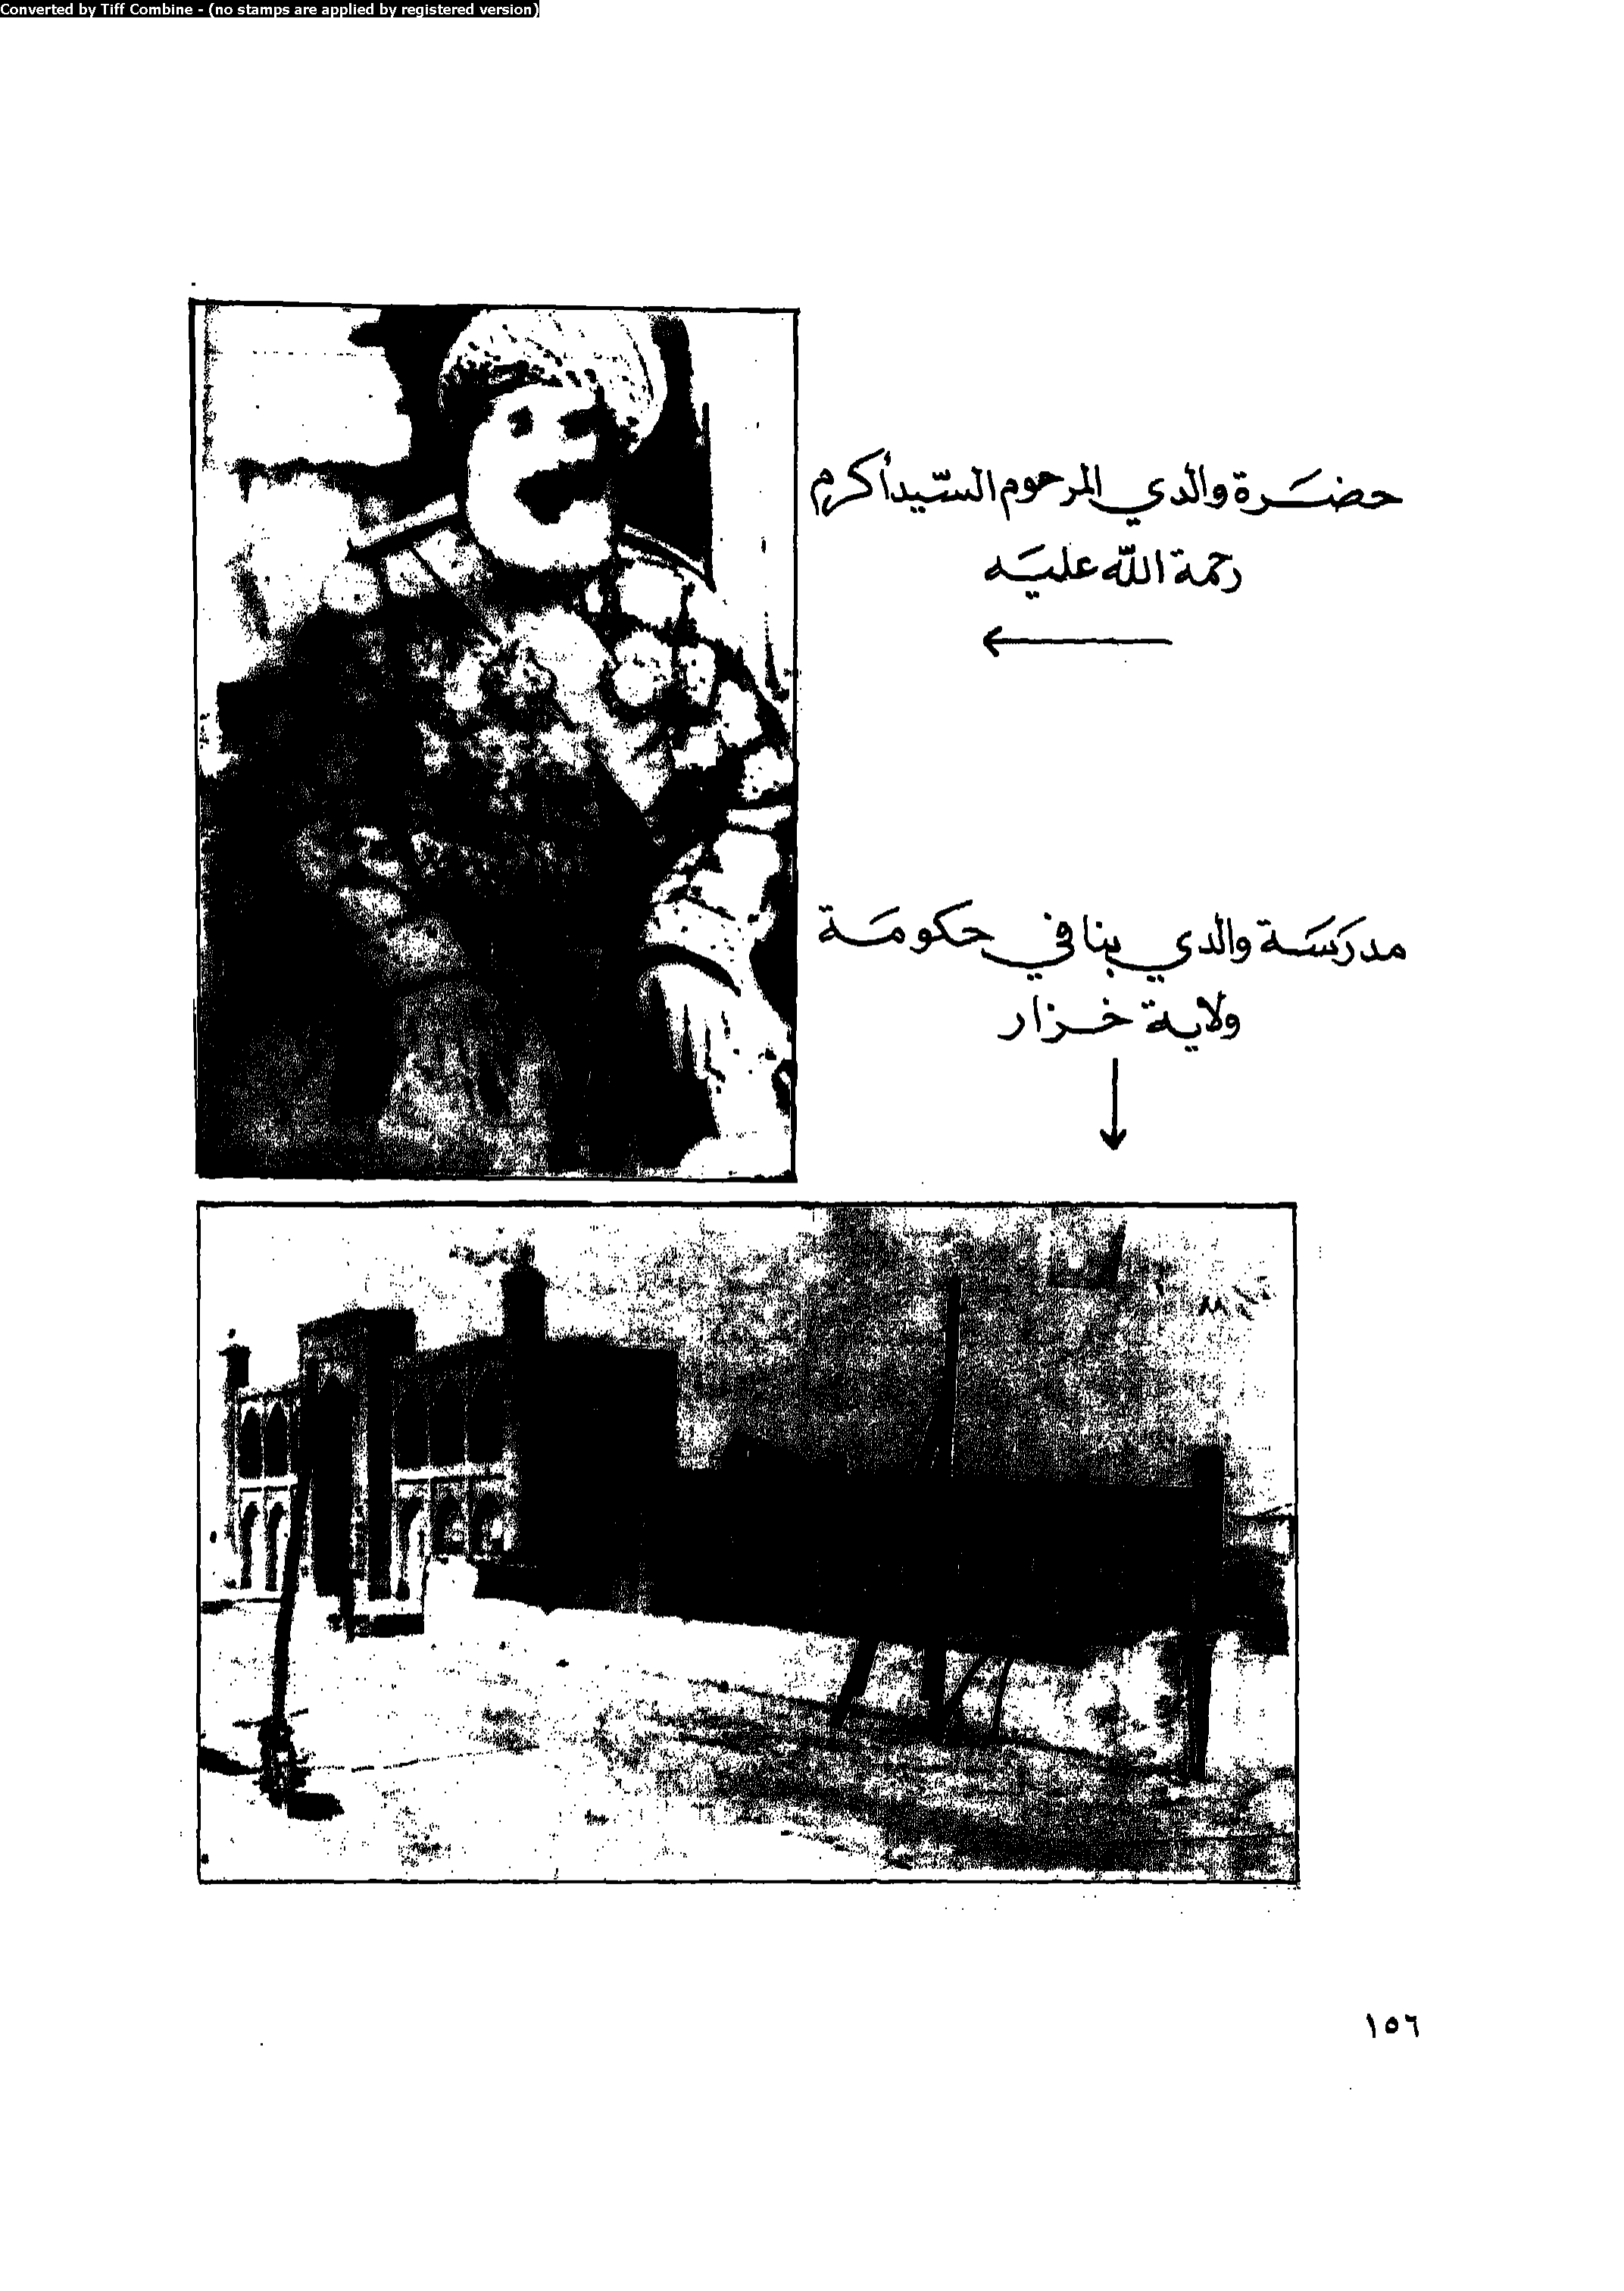 Converted by Tiff Combine - (no stamps are applied by registered version)
حضَرة والدي المرحوم السّيد أكرم
رحمة اللّه عليَه
مدرَسَة والدي بنا في حكومَة
ولاية خزار
١٥٦